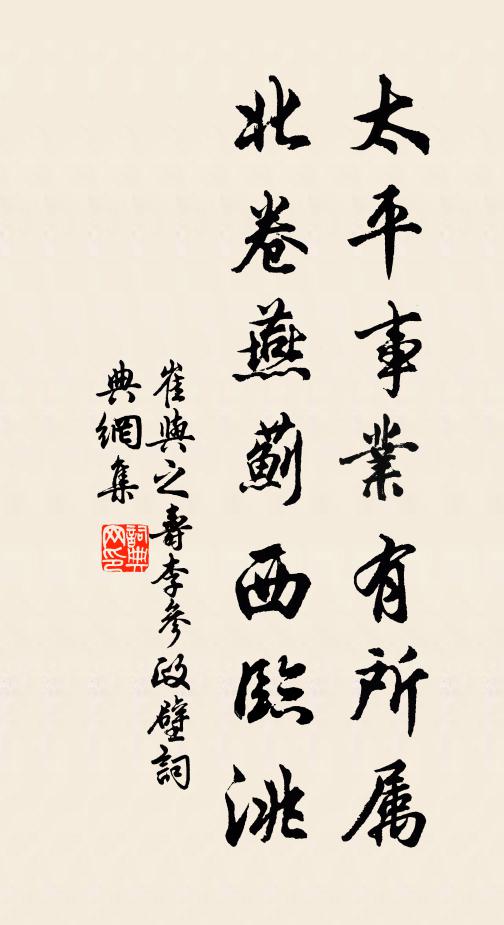 太平事業有所属
北卷燕薊西臨洮
崔與之壽李參政壁詞
典網集
詞典網印